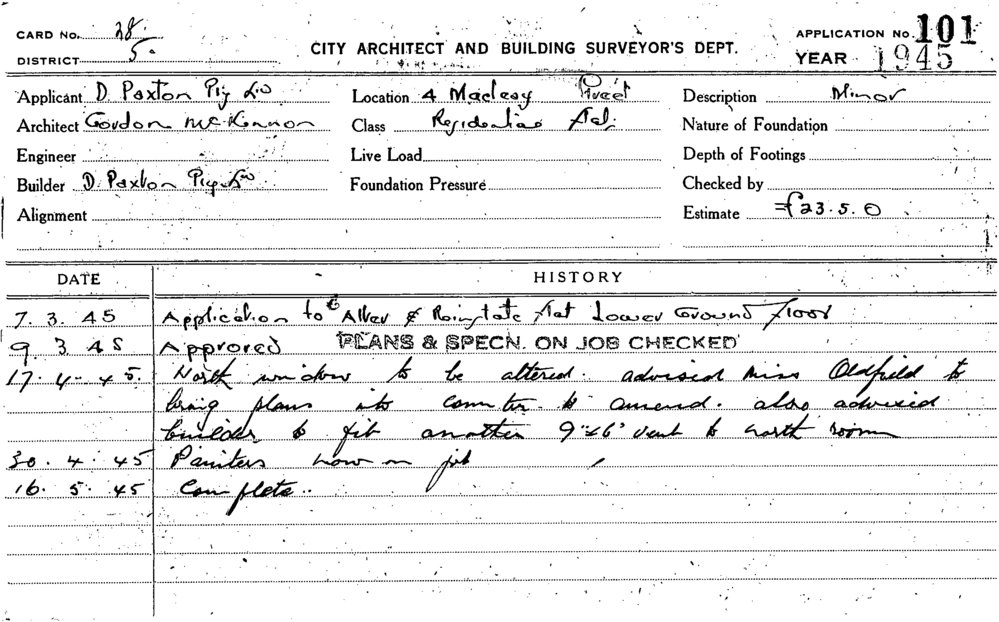 CARD No. 28.
DISTRICT 5.
CITY ARCHITECT AND BUILDING SURVEYOR'S DEPT.
APPLICATION No. 101
YEAR 1945
Applicant D. Paxton Pty Ltd
Location 4 Macleay Street
Description Minor
Architect Gordon McKinnon
Class Residential Flat
Nature of Foundation
Engineer
Live Load
Depth of Footings
Builder D. Paxton Pty Ltd
Foundation Pressure
Checked by
Alignment
Estimate £23.5.0
DATE HISTORY
7. 3. 45 Application to Alter & Reinstate Flat Lower Ground Floor
9. 3. 45 Approved PLANS & SPECN. ON JOB CHECKED
17. 4. 45. North window to be altered. advised Miss Oldfield to
bring plans into counter to amend. also advised
builder to fit another 9"x6" vent to north room
30. 4. 45 Painters now on job
16. 5. 45 Complete.